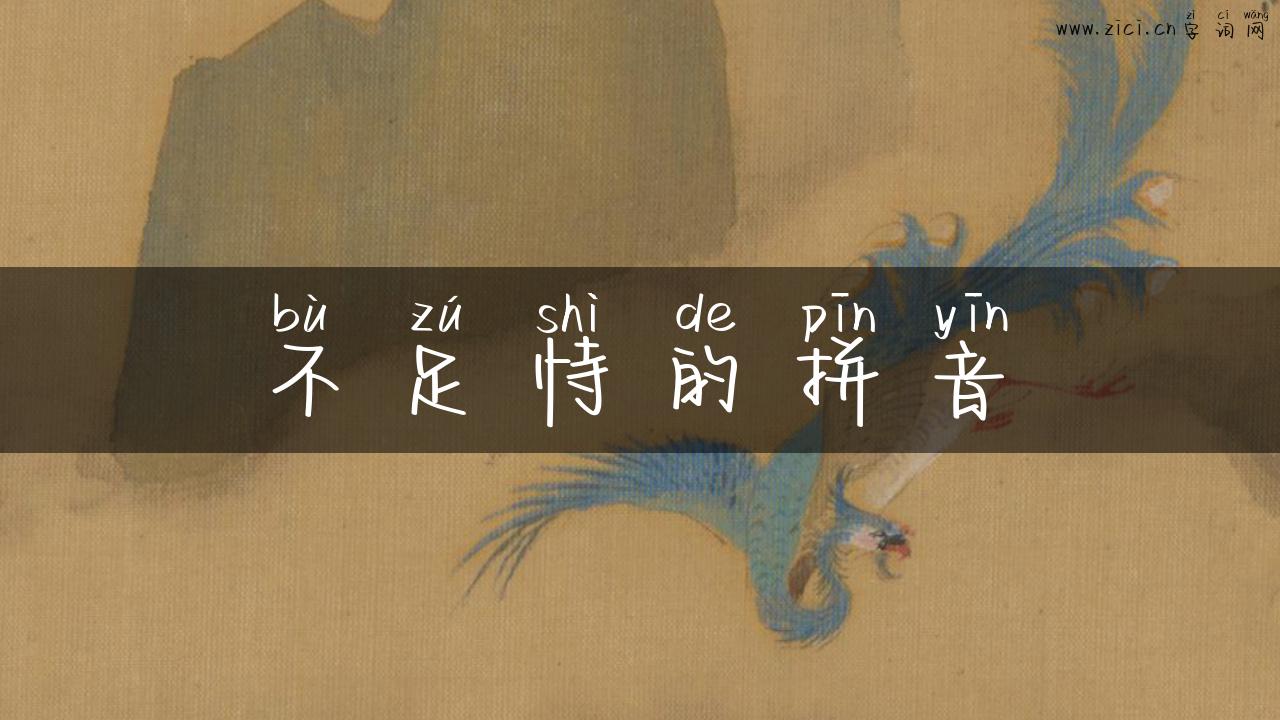 zì cí wǎng
www.zici.cn 字词网
bù zú shì de pīn yīn
不足恃的拼音